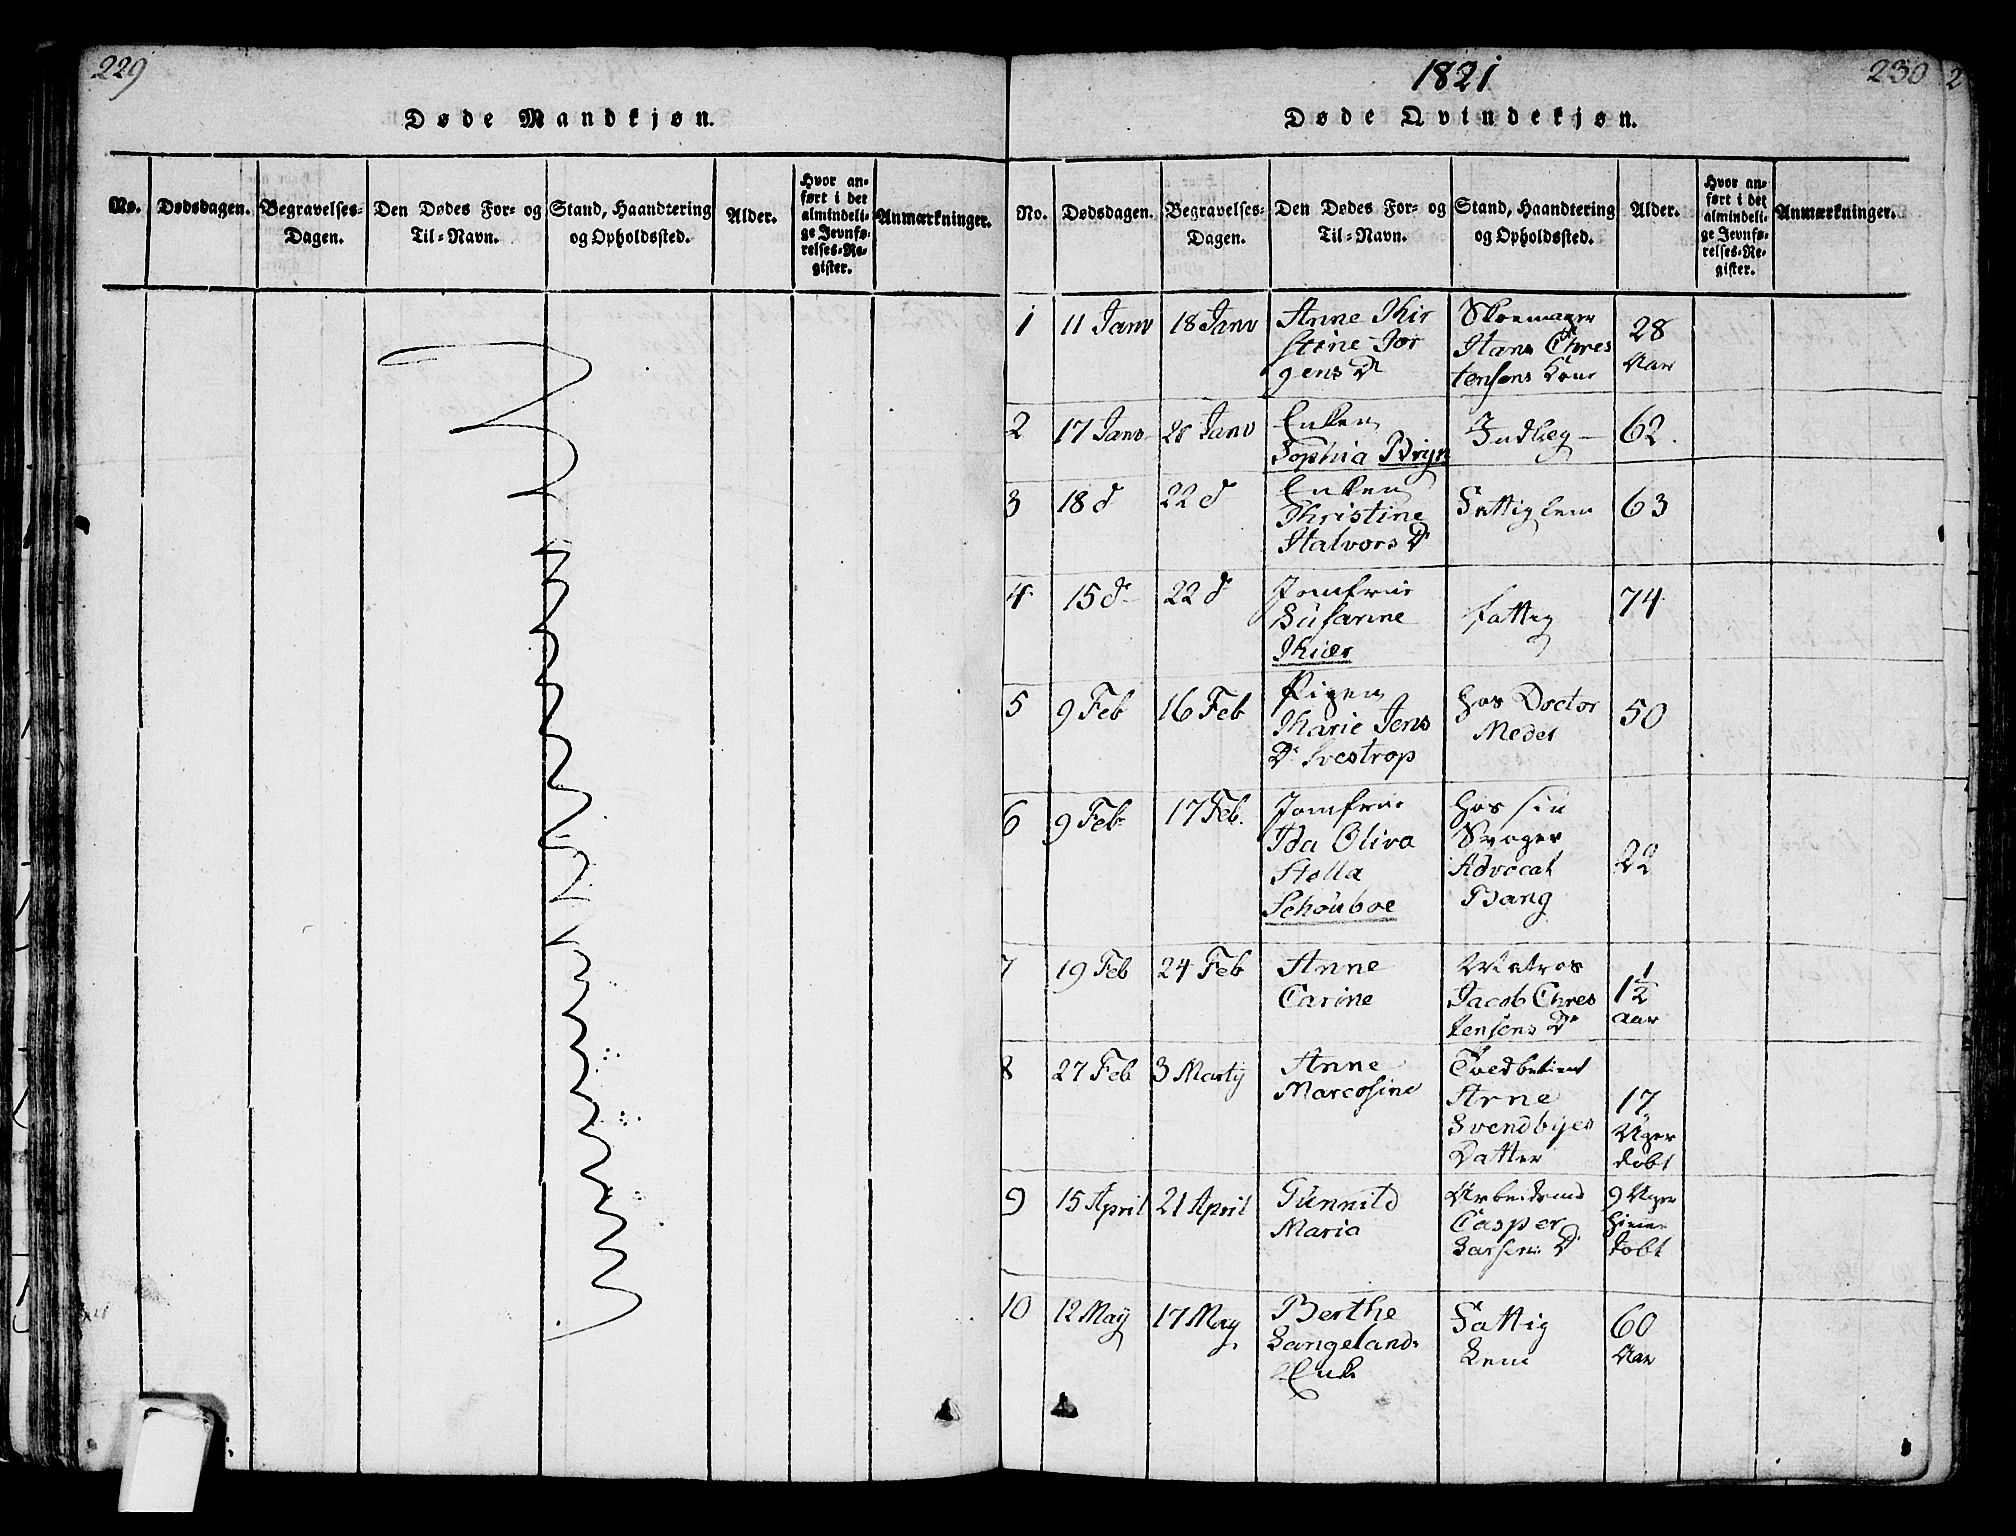 229
Døde Mandkjøn.
No.
Dødsdagen.
Begravelses-
Dagen.
Den Dødes For- og
Til-Navn.
Stand, Haandtering
og Opholdssted.
Alder.
Hvor an-
ført i det
almindeli-
ge Jevnfø-
relses-Re-
gister.
Anmærkninger.
1821
230
Døde Qvindekjøn.
No.
Dødsdagen.
Begravelses-
Dagen.
Den Dødes For- og
Til-Navn.
Stand, Haandtering
og Opholdssted.
Alder.
Hvor an-
ført i det
almindeli-
ge Jevnfø-
relses-Re-
gister.
Anmærkninger.
1
11 Janv
18 Janv
Anne Kir
stine Jør
gens Dr
Skoemager
Hans Chres
tensens Kone
28
Aar
2
17 Janv
Janv
Enken
Sophia Bryn
Indlæg
62.
3
18 d
22 d
Enken
Christine
Halvors Dr
Fattiglem
63
4
15 d
22 d
Jomfrue
Susarine
Kiær
fattig
74
5
9 Feb
16 Feb
Pigen
Marie Jens
Dr
hos Doctor
50
6
9 Feb
17 Feb.
Jomfrue
Ida Oliva
Holla
Schouboe
hos sin
Svoger
Advocat
Bang
22
7
19 Feb
24 Feb
Anne
Carine
Matros
Jacob Chres
tensens Dr
1 1/2
aar
8
27 Feb
3 Marty
Anne
Marcosine
Toldbetient
Arne
Svendbyes
Datter
17
Uger
døbt
9
15 April
21 April
Gunnild
Maria
Arbeidsmd
Casper
Larsens Dr
9 Uger
hieme
døbt
10
12 May
17 May
Berthe
Langeland.
Enke
Fattig
Lem
60
Aar